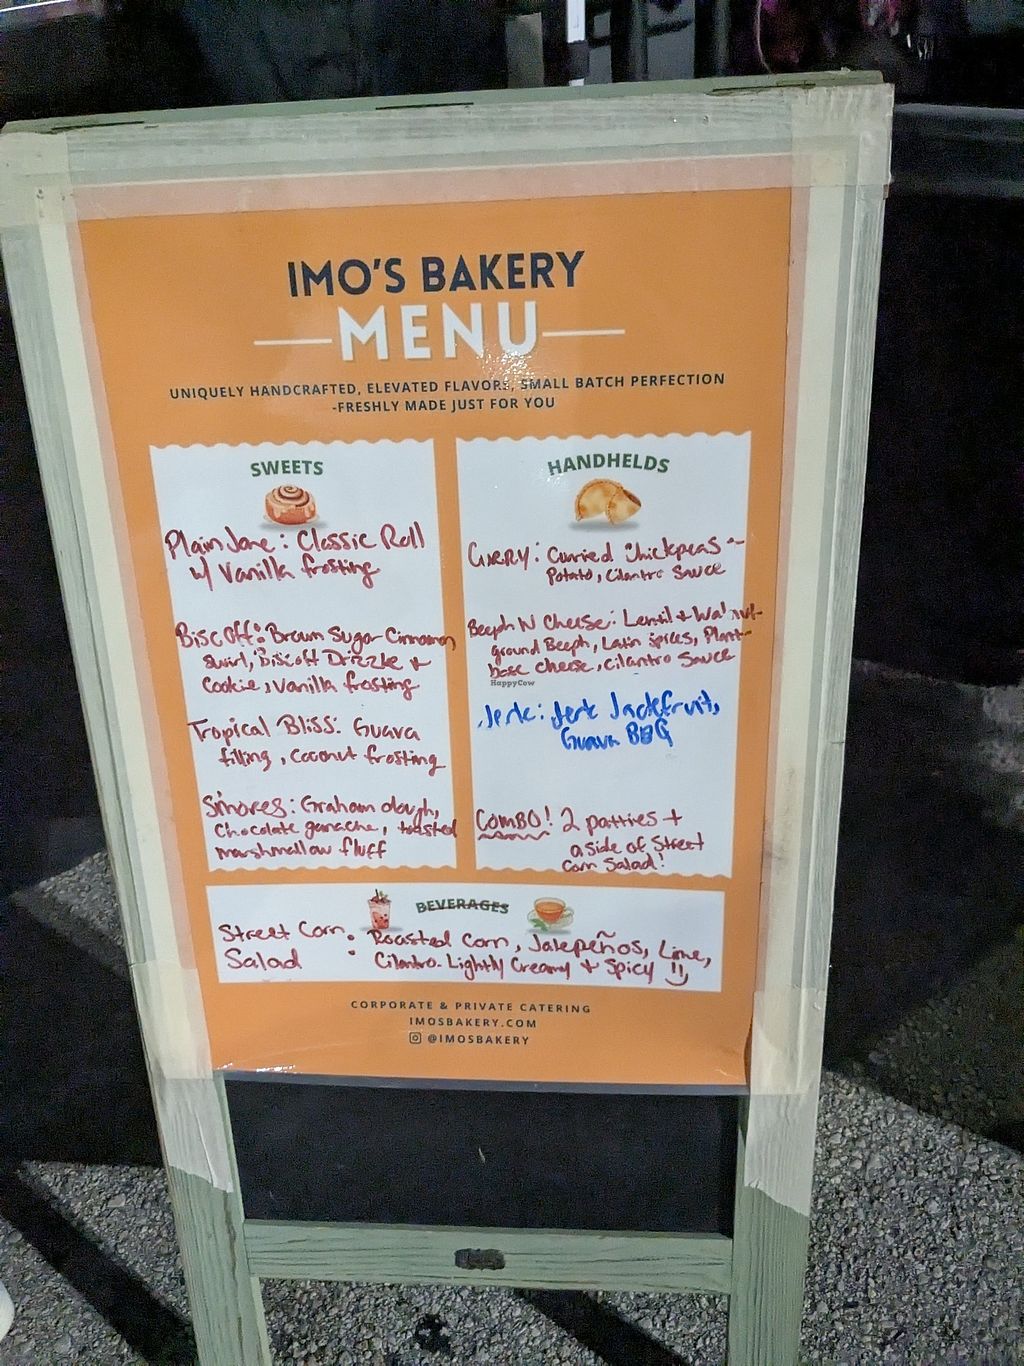 IMO'S BAKERY
MENU
UNIQUELY HANDCRAFTED, ELEVATED FLAVORS, SMALL BATCH PERFECTION
-FRESHLY MADE JUST FOR YOU
SWEETS
Plain Jane: Classic Roll
w/ Vanilla frosting
Biscoff: Brown Sugar-Cinnamon
swirl, Biscoff Drizzle +
Cookie, Vanilla frosting
Tropical Bliss: Guava
filling, coconut frosting
S'mores: Graham dough,
Chocolate ganache, toasted
marshmallow fluff
HANDHELDS
Curry: Curried Chickpeas ~
Potato, Cilantro Sauce
Beeph N Cheese: Lentil + Walnut-
ground Beeph, Latin spices, Plant-
base cheese, cilantro sauce
HappyCow
Jerk: Jerk Jackfruit,
Guava BBQ
COMBO! 2 patties +
a side of Street
Corn Salad!
BEVERAGES
Street Corn: Roasted Corn, Jalepeños, Lime,
Salad Cilantro. Lightly Creamy + Spicy :)
CORPORATE & PRIVATE CATERING
IMOSBAKERY.COM
@IMOSBAKERY